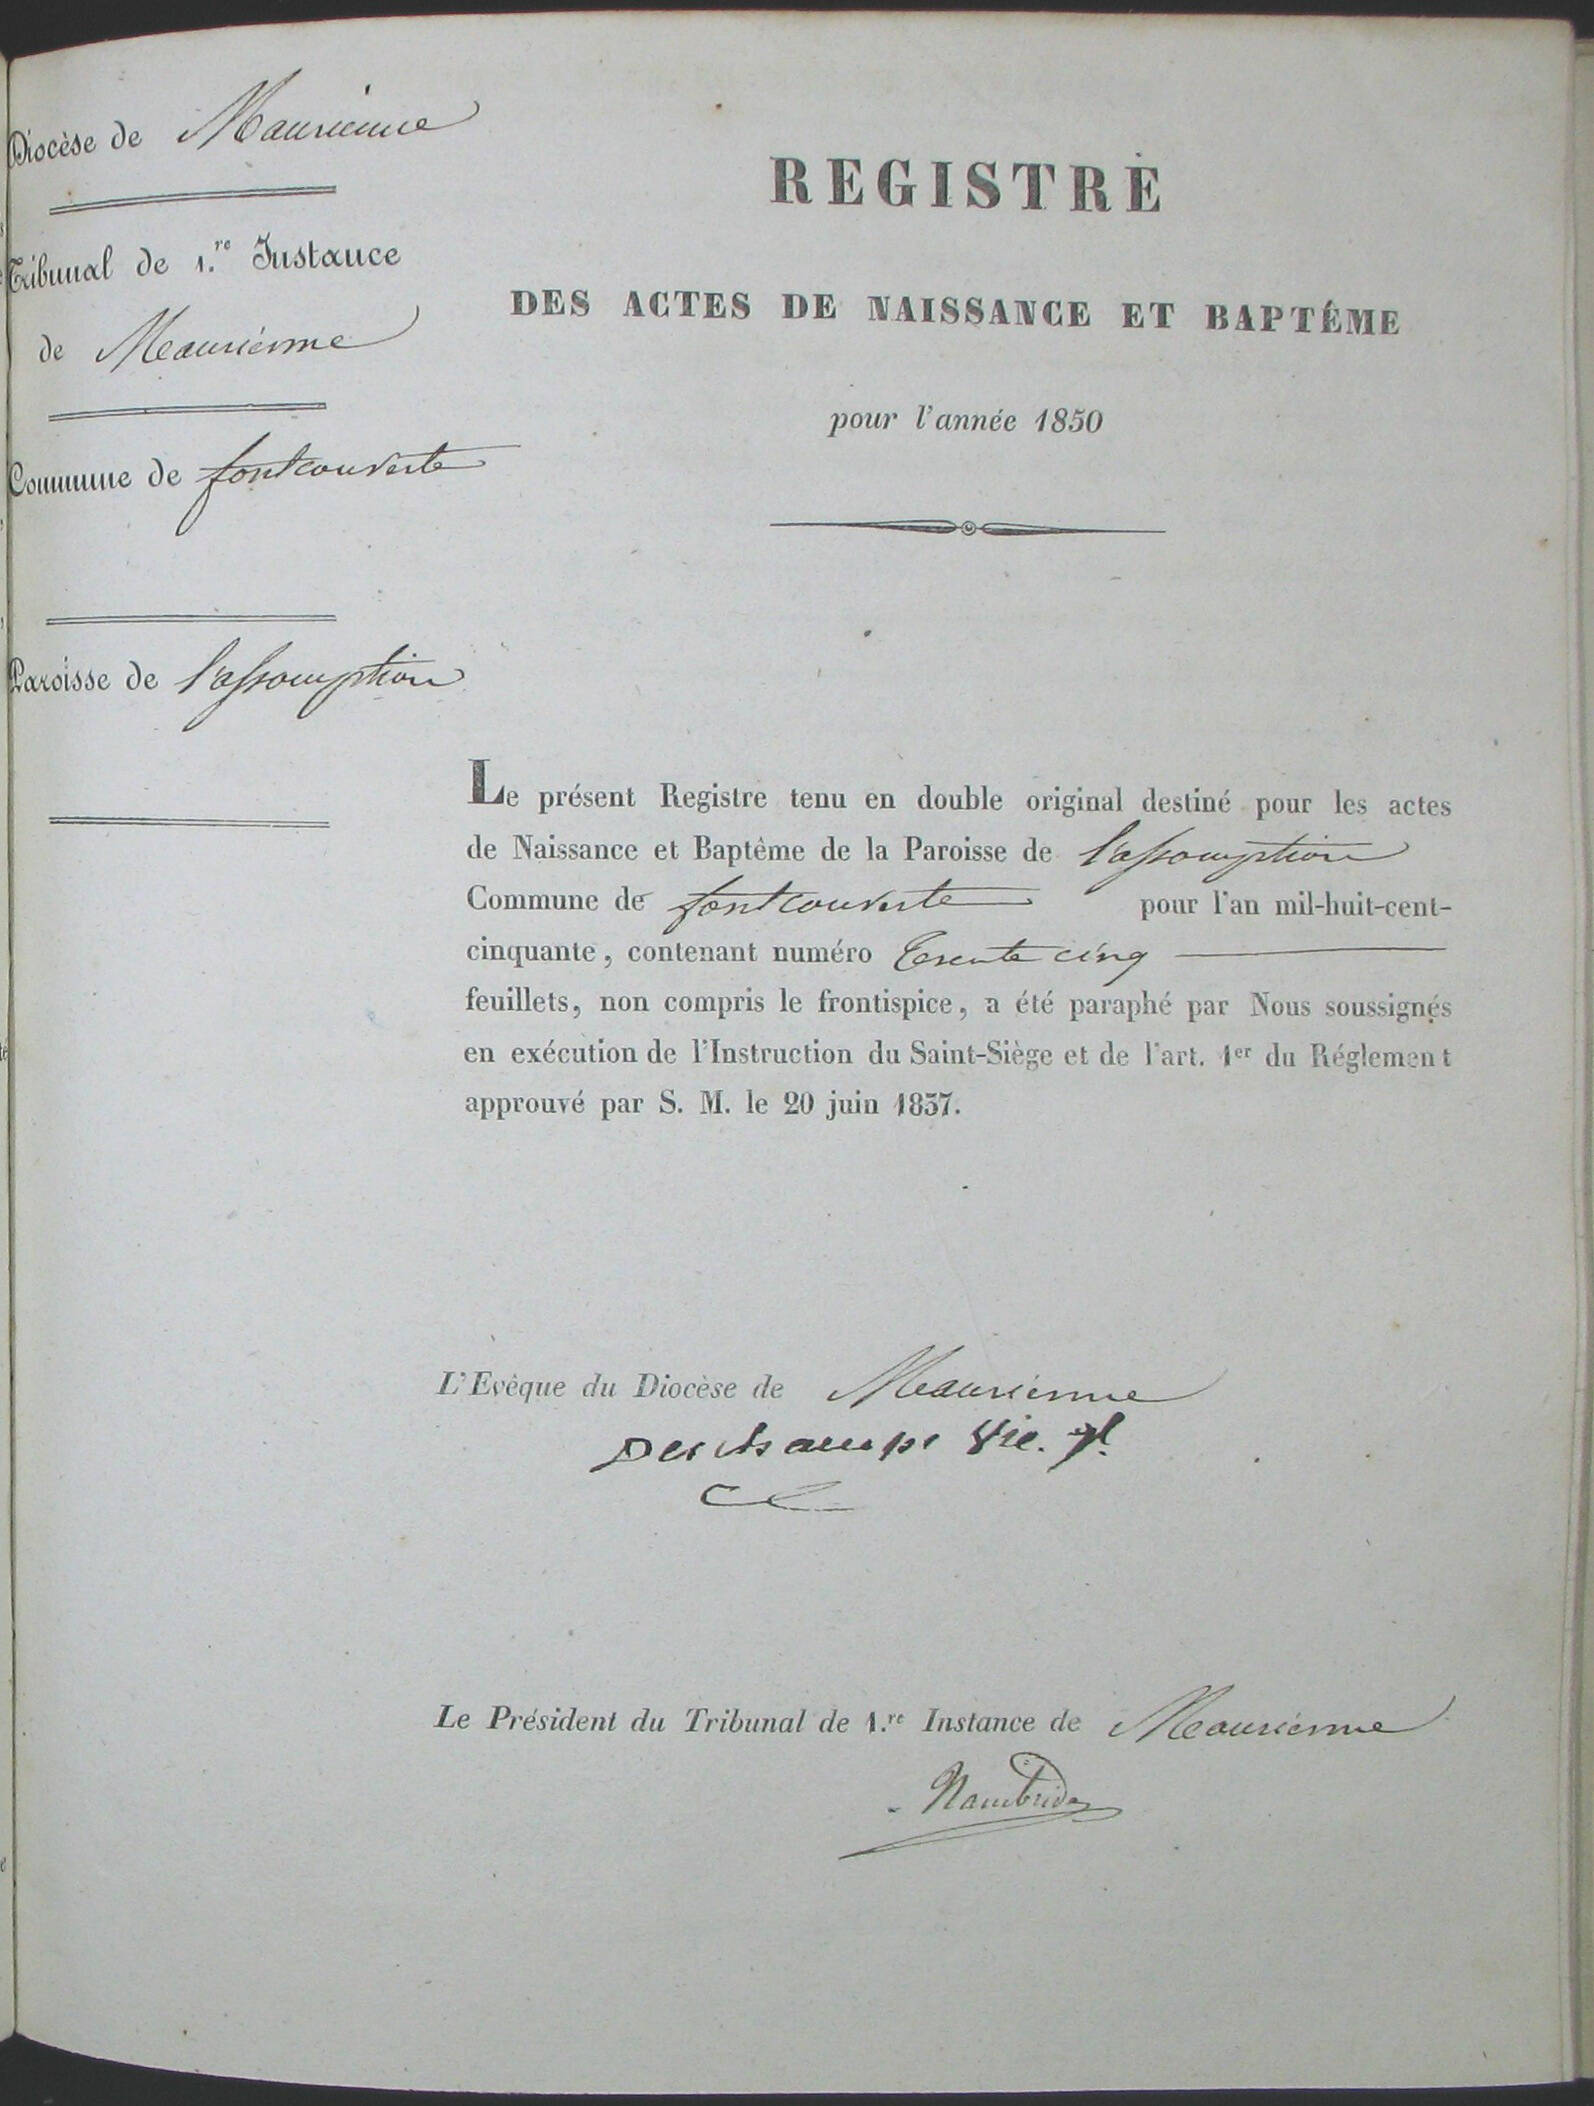 Diocèse de Maurienne
Tribunal de 1.re Instance
de Maurienne
Commune de fontcouverte
Paroisse de l'assomption
REGISTRE
DES ACTES DE NAISSANCE ET BAPTÊME
pour l'année 1850
Le présent Registre tenu en double original destiné pour les actes
de Naissance et Baptême de la Paroisse de l'assomption
Commune de fontcouverte pour l'an mil-huit-cent-
cinquante, contenant numéro Trente cinq
feuillets, non compris le frontispice, a été paraphé par Nous soussignés
en exécution de l'Instruction du Saint-Siège et de l'art. 1er du Réglement
approuvé par S. M. le 20 juin 1837.
L'Evêque du Diocèse de Maurienne
Deschamps Vic. gl.
Le Président du Tribunal de 1.re Instance de Maurienne